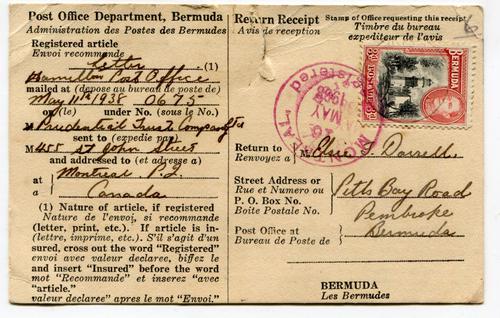 Post Office Department, Bermuda
Administration des Postes des Bermudes
Registered article
Envoi recommande
Letter (1)
Hamilton Post Office
mailed at (depose au bureau de poste de)
May 11th 1938 0675
on (le) under No. (sous le No.)
Prudential Trust Company Ltd
sent to (expedie par)
M 455 St John Street
and addressed to (et adresse a)
at Montreal P.Q.
a Canada
(1) Nature of article, if registered
Nature de l'envoi, si recommande
(letter, print, etc.). If article is in-
(lettre, imprime, etc.). S'il s'agit d'un
sured, cross out the word "Registered"
envoi avec valeur declaree, biffez le
and insert "Insured" before the word
mot "Recommande" et inserez "avec
"article."
valeur declaree" apres le mot "Envoi."
Return Receipt
Avis de reception
Stamp of Office requesting this receipt
Timbre du bureau
expediteur de l'avis
BERMUDA
POSTAGE
REGISTERED
MAY
1938
MONTREAL
Return to
Renvoyez a
T. Darrell
Street Address or
Rue et Numero ou
P. O. Box No.
Boite Postale No.
Pitts Bay Road
Pembroke
Post Office at
Bureau de Poste de
Bermuda
BERMUDA
Les Bermudes